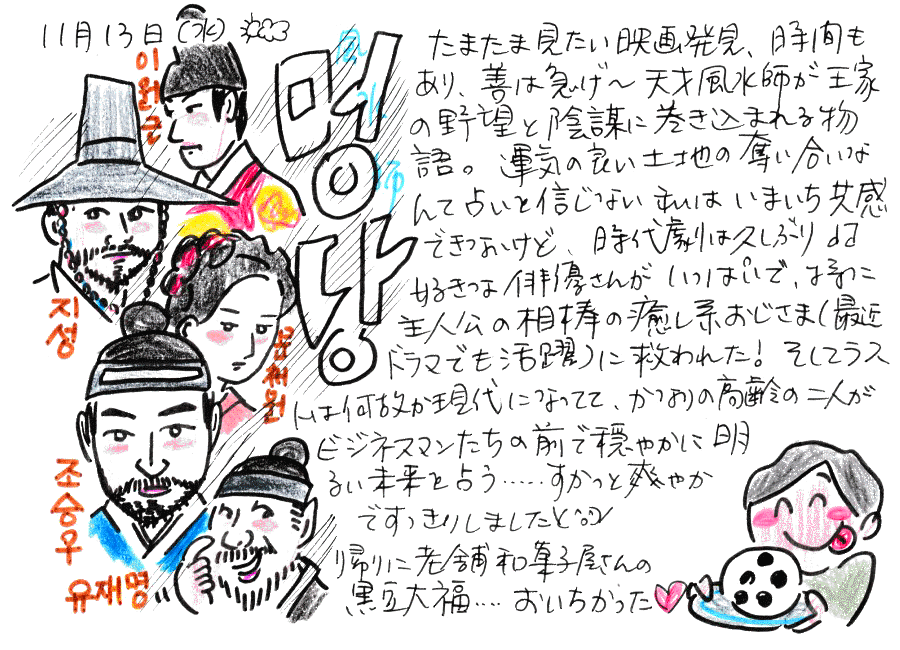 11月13日(水)
이원근
명당
風水師
지성
문채원
조승우
유재명
たまたま見たい映画発見、時間も
あり、善は急げ〜天才風水師が王家
の野望と陰謀に巻き込まれる物
語。運気の良い土地の奪い合いな
んて占いを信じない私は いまいち共感
できないけど 時代劇は久しぶり
好きな俳優さんがいっぱいで、特に
主人公の相棒の癒し系おじさま(最近
ドラマでも活躍)に救われた!そしてラス
トは何故か現代になってて、かなりの高齢の二人が
ビジネスマンたちの前で穏やかに明
るい未来を占う……すかっと爽やか
ですっきりしました
帰りに老舗和菓子屋さんの
黒豆大福….おいちかった